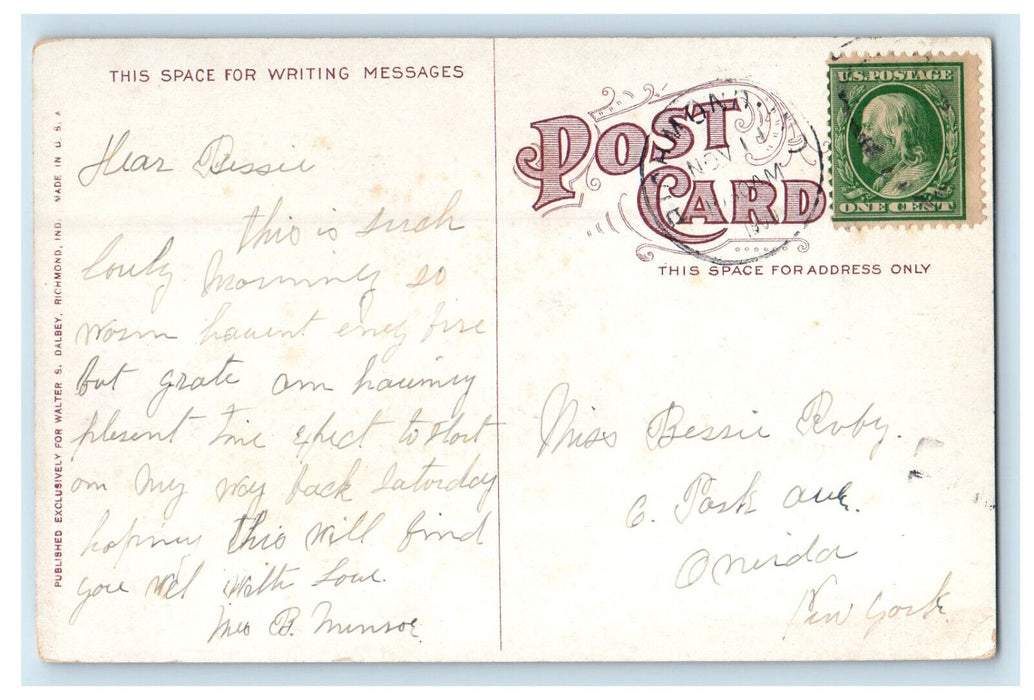 THIS SPACE FOR WRITING MESSAGES
Dear Bessie
this is such
lovly morning so
worm havent eney fire
but grate am haveing
plesent time expect to start
on my way back Saturday
hopiney this will find
you well with Love.
Mrs B. Munroe
PUBLISHED EXCLUSIVELY FOR WALTER S. DALBEY, RICHMOND, IND. MADE IN U. S. A
POST
CARD
RICHMOND
NOV
AM
U.S. POSTAGE
ONE CENT
THIS SPACE FOR ADDRESS ONLY
Miss Bessie Ruby.
6. Park Ave.
Oneida
New York.